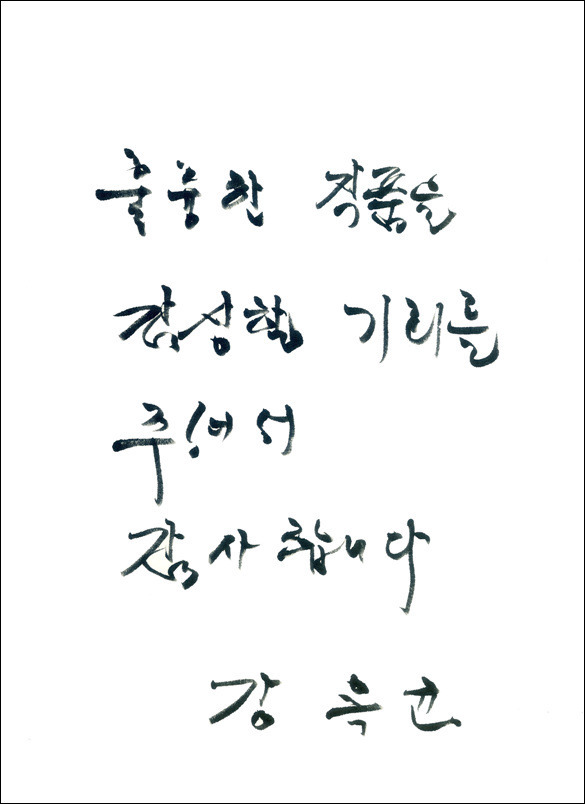 훌륭한 작품을
감상할 기회를
주셔서
감사합니다
강 옥